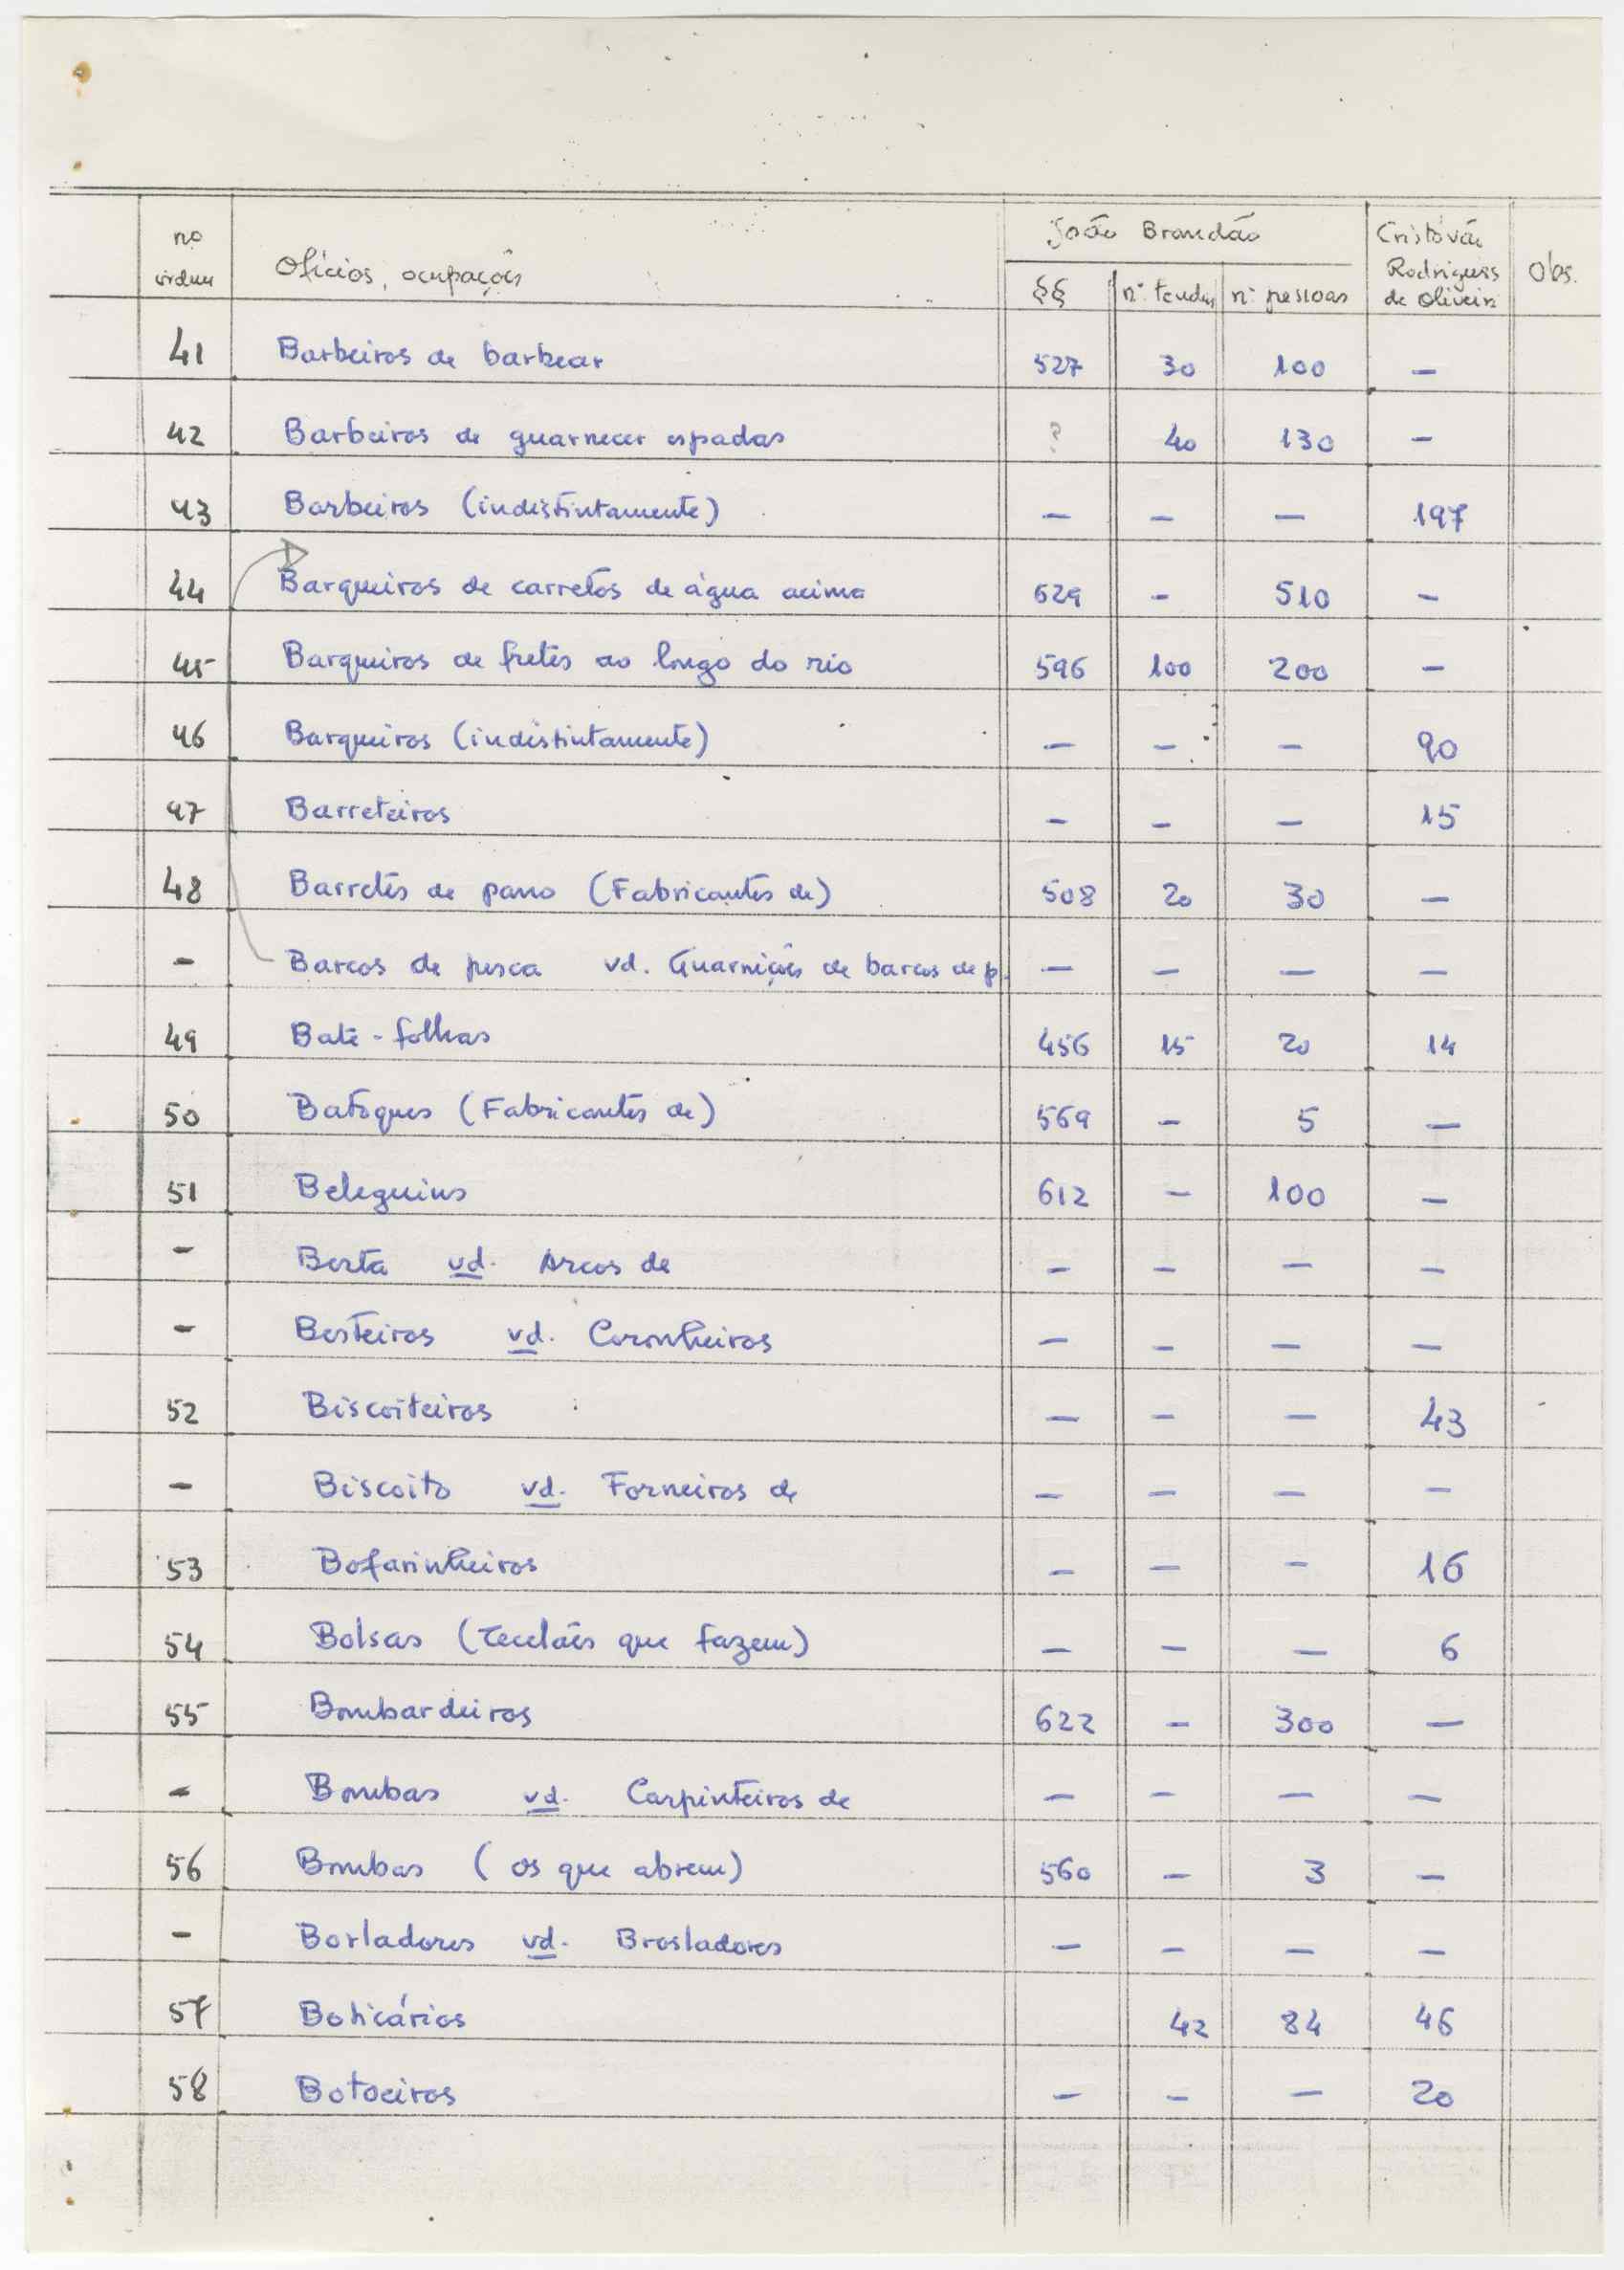 no ordem | Ofícios, ocupações | João Brandão | Cristóvão Rodrigues de Oliveira | Obs.
§§ | nº tendas | nº pessoas
41 Barbeiros de barbear 527 30 100 —
42 Barbeiros de guarnecer espadas ? 40 130 —
43 Barbeiros (indistintamente) — — — 197
44 Barqueiros de carretos de água acima 629 - 510 —
45 Barqueiros de fretes ao longo do rio 596 100 200 —
46 Barqueiros (indistintamente) — — — 90
47 Barreteiros — — — 15
48 Barretes de pano (Fabricantes de) 508 20 30 —
- Barcos de pesca vd. Guarnições de barcos de p. — — — —
49 Bate-folhas 456 15 20 14
50 Batoques (Fabricantes de) 569 — 5 —
51 Beleguins 612 — 100 —
- Besta vd. Arcos de — — — —
- Besteiros vd. Coronheiros — — — —
52 Biscoiteiros — — — 43
- Biscoito vd. Forneiros de — — — —
53 Bofarinheiros — — — 16
54 Bolsas (Tecelões que fazem) — — — 6
55 Bombardeiros 622 — 300 —
- Bombas vd. Carpinteiros de — — — —
56 Bombas (os que abrem) 560 — 3 —
- Borladores vd. Brosladores — — — —
57 Boticários 42 84 46
58 Botoeiros — — — 20